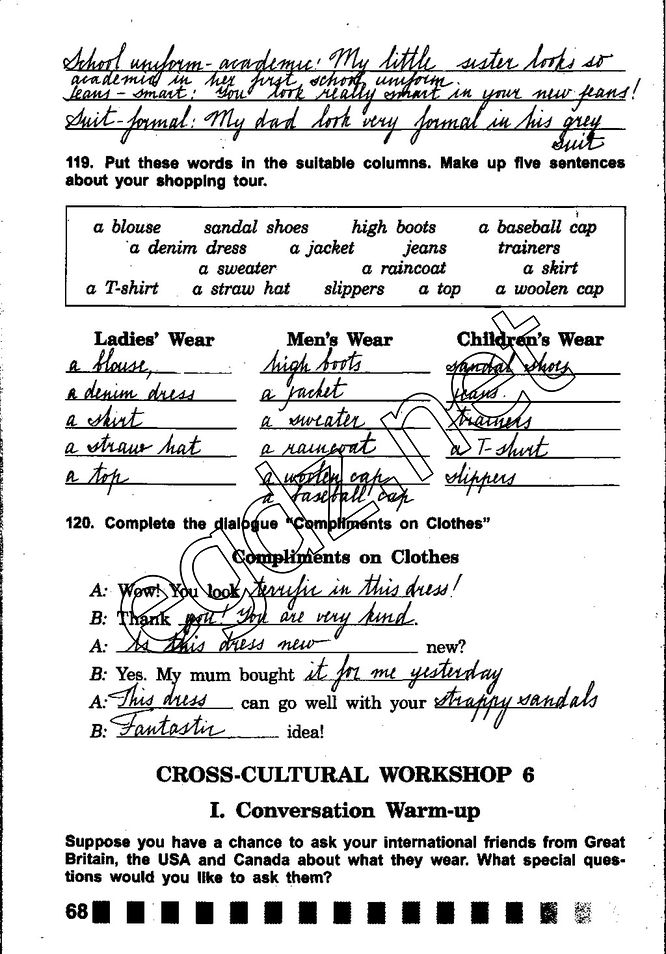 School uniform - academic: My little sister looks so
academic in her first school uniform.
Jeans - smart: You look really smart in your new jeans!
Suit - formal: My dad look very formal in his grey
suit
119. Put these words in the suitable columns. Make up five sentences
about your shopping tour.
a blouse sandal shoes high boots a baseball cap
a denim dress a jacket jeans trainers
a sweater a raincoat a skirt
a T-shirt a straw hat slippers a top a woolen cap
Ladies' Wear Men's Wear Children's Wear
a blouse, high boots sandal shoes
a denim dress a jacket jeans.
a skirt a sweater trainers
a straw hat a raincoat a T-shirt
a top a woolen cap slippers
a baseball cap
120. Complete the dialogue "Compliments on Clothes"
Compliments on Clothes
A: Wow! You look terrific in this dress!
B: Thank you! You are very kind.
A: Is this dress new new?
B: Yes. My mum bought it for me yesterday
A: This dress can go well with your strappy sandals
B: Fantastic idea!
CROSS-CULTURAL WORKSHOP 6
I. Conversation Warm-up
Suppose you have a chance to ask your international friends from Great
Britain, the USA and Canada about what they wear. What special ques-
tions would you like to ask them?
68
egdz.net